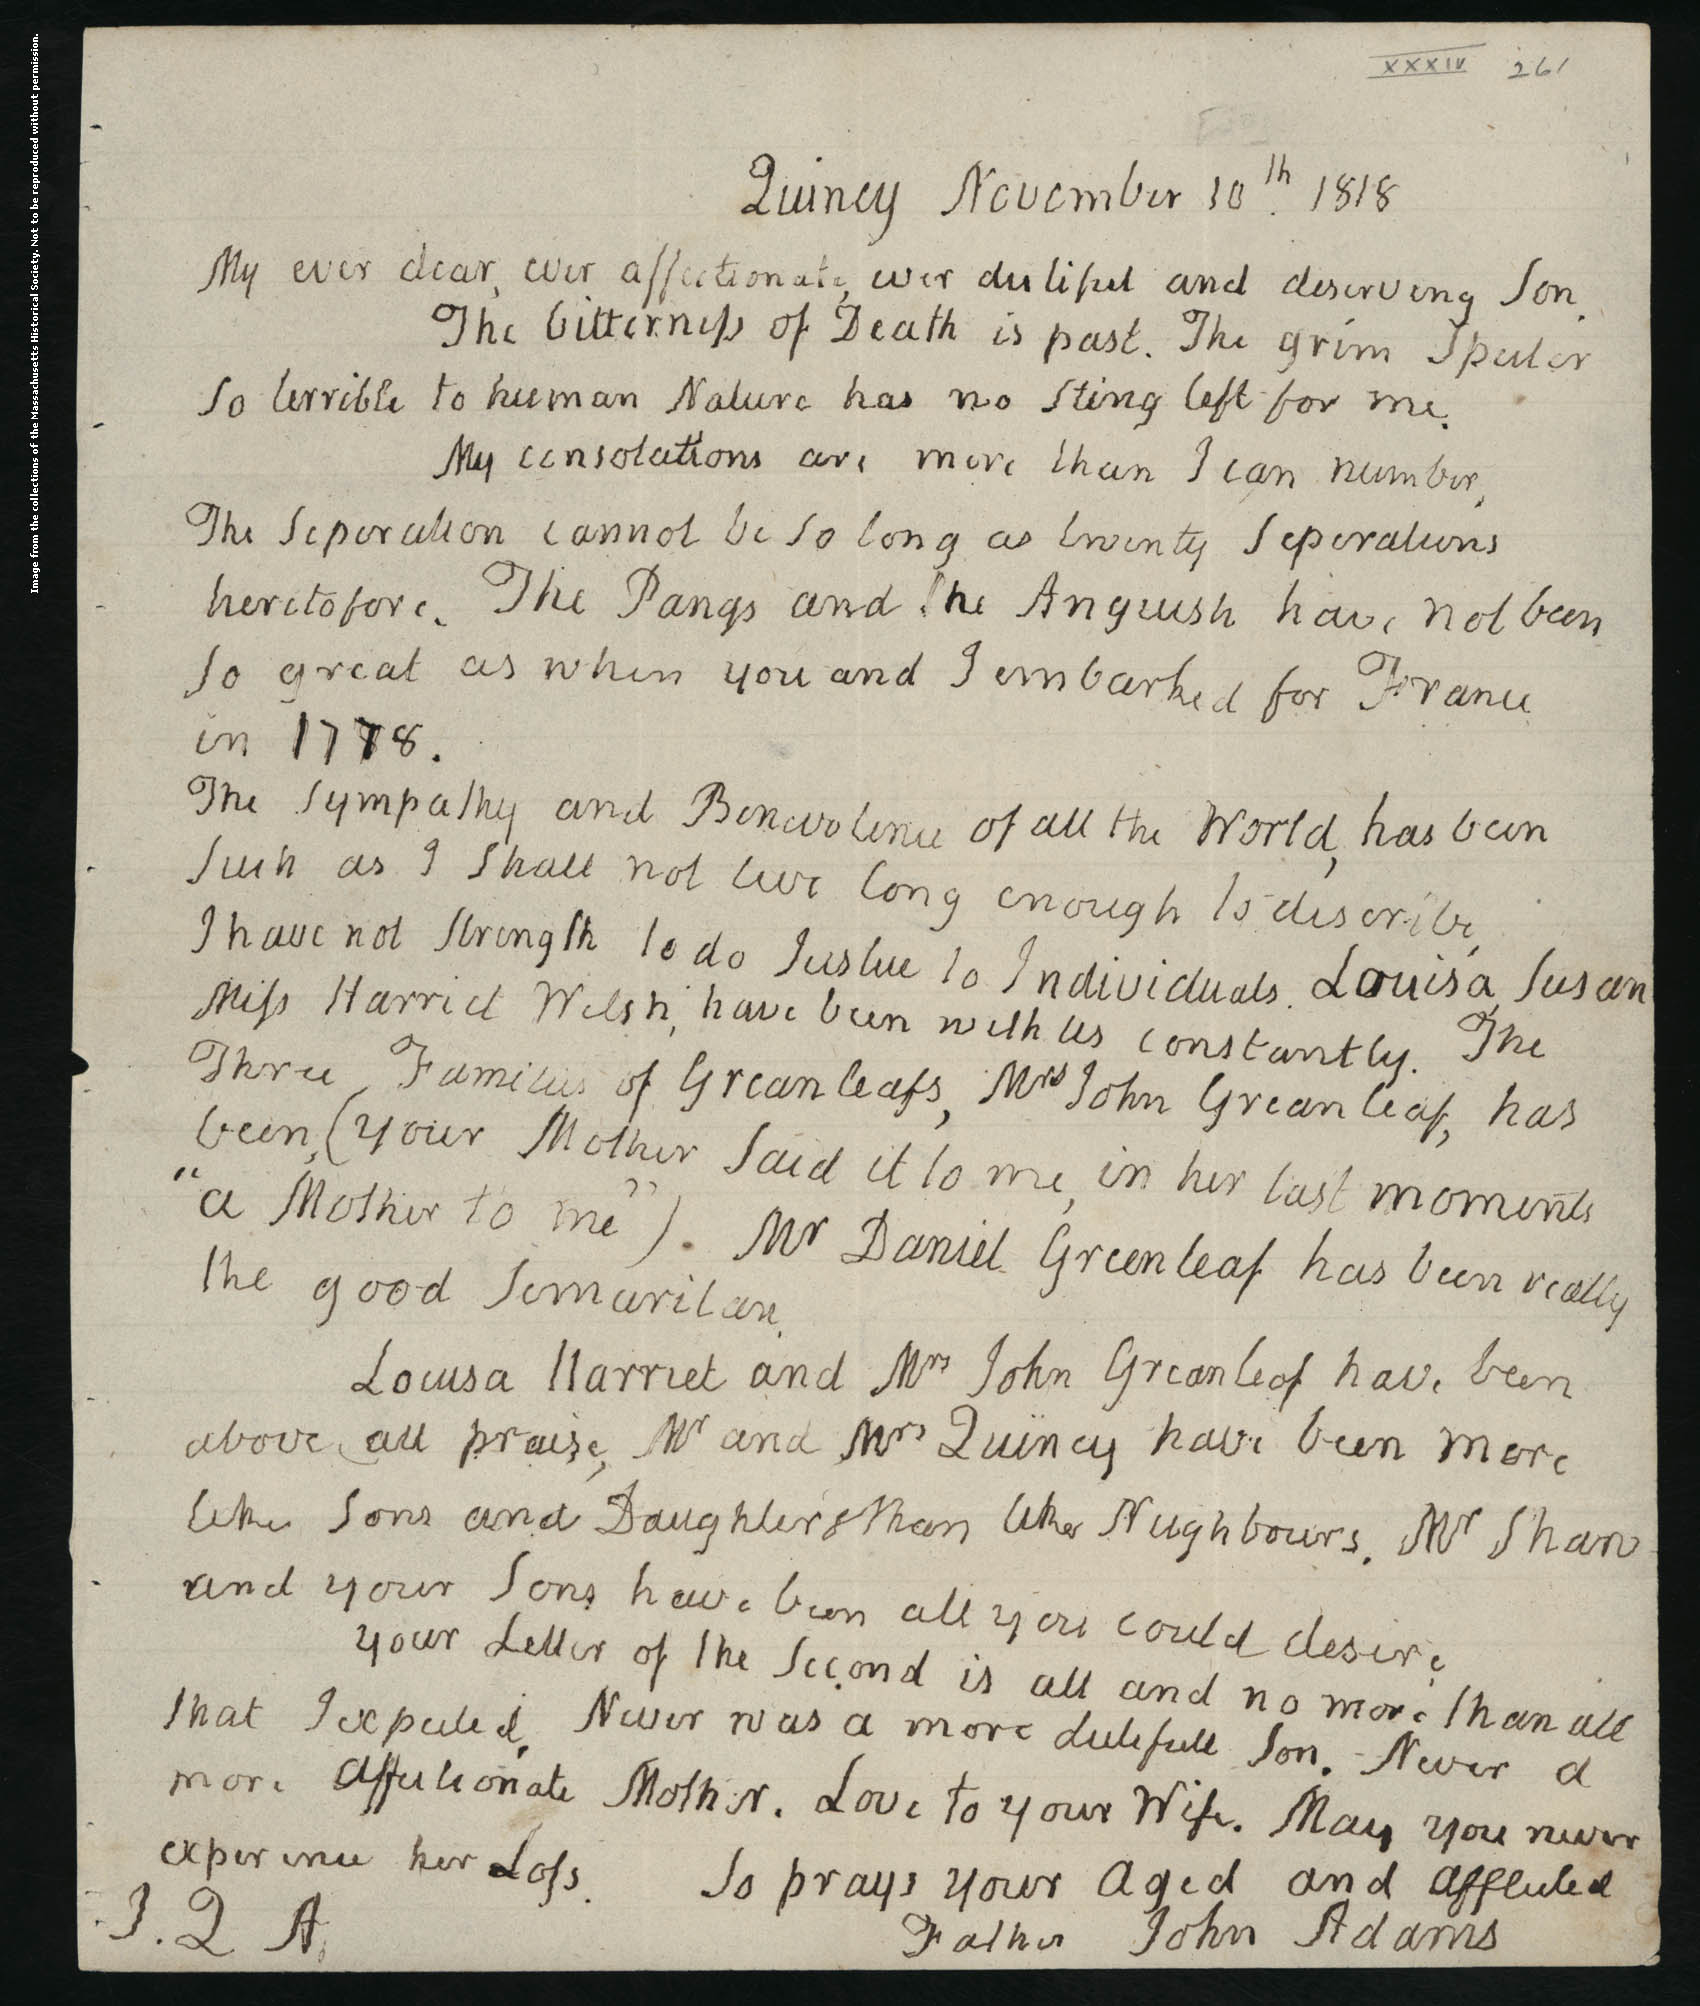 Image from the collections of the Massachusetts Historical Society. Not to be reproduced without permission.
XXXIV 261
Quincy November 10th. 1818
My ever dear, ever affectionate, ever dutifull and deserving Son.
The bitterness of Death is past. The grim Specter
so terrible to human Nature has no sting left for me.
My consolations are more than I can number.
The Seperation cannot be so long as twenty Seperations
heretofore. The Pangs and the Anguish have not been
so great as when you and I embarked for France
in 1778.
The sympathy and Benevolence of all the World, has been
such as I shall not live long enough to describe.
I have not strength to do Justice to Individuals. Louisa, Susan
Miss Harriet Welsh, have been with us constantly. The
Three Families of Greanleafs, Mrs John Greanleaf, has
been, (your Mother said it to me, in her last moments
"a Mother to me"). Mr Daniel Greenleaf has been really
the good Semaritan.
Louisa Harriet and Mrs John Greanleaf have been
above all praise, Mr and Mrs Quincy have been more
like sons and Daughters than like Neighbours. Mr Shaw
and your Sons have been all you could desire.
your Letter of the second is all and no more than all
that I expected. Never was a more dutifull Son. Never a
more Affectionate Mother. Love to your Wife. May you never
experience her Loss. So prays your Aged and Afflicted
Father John Adams
J. Q A.